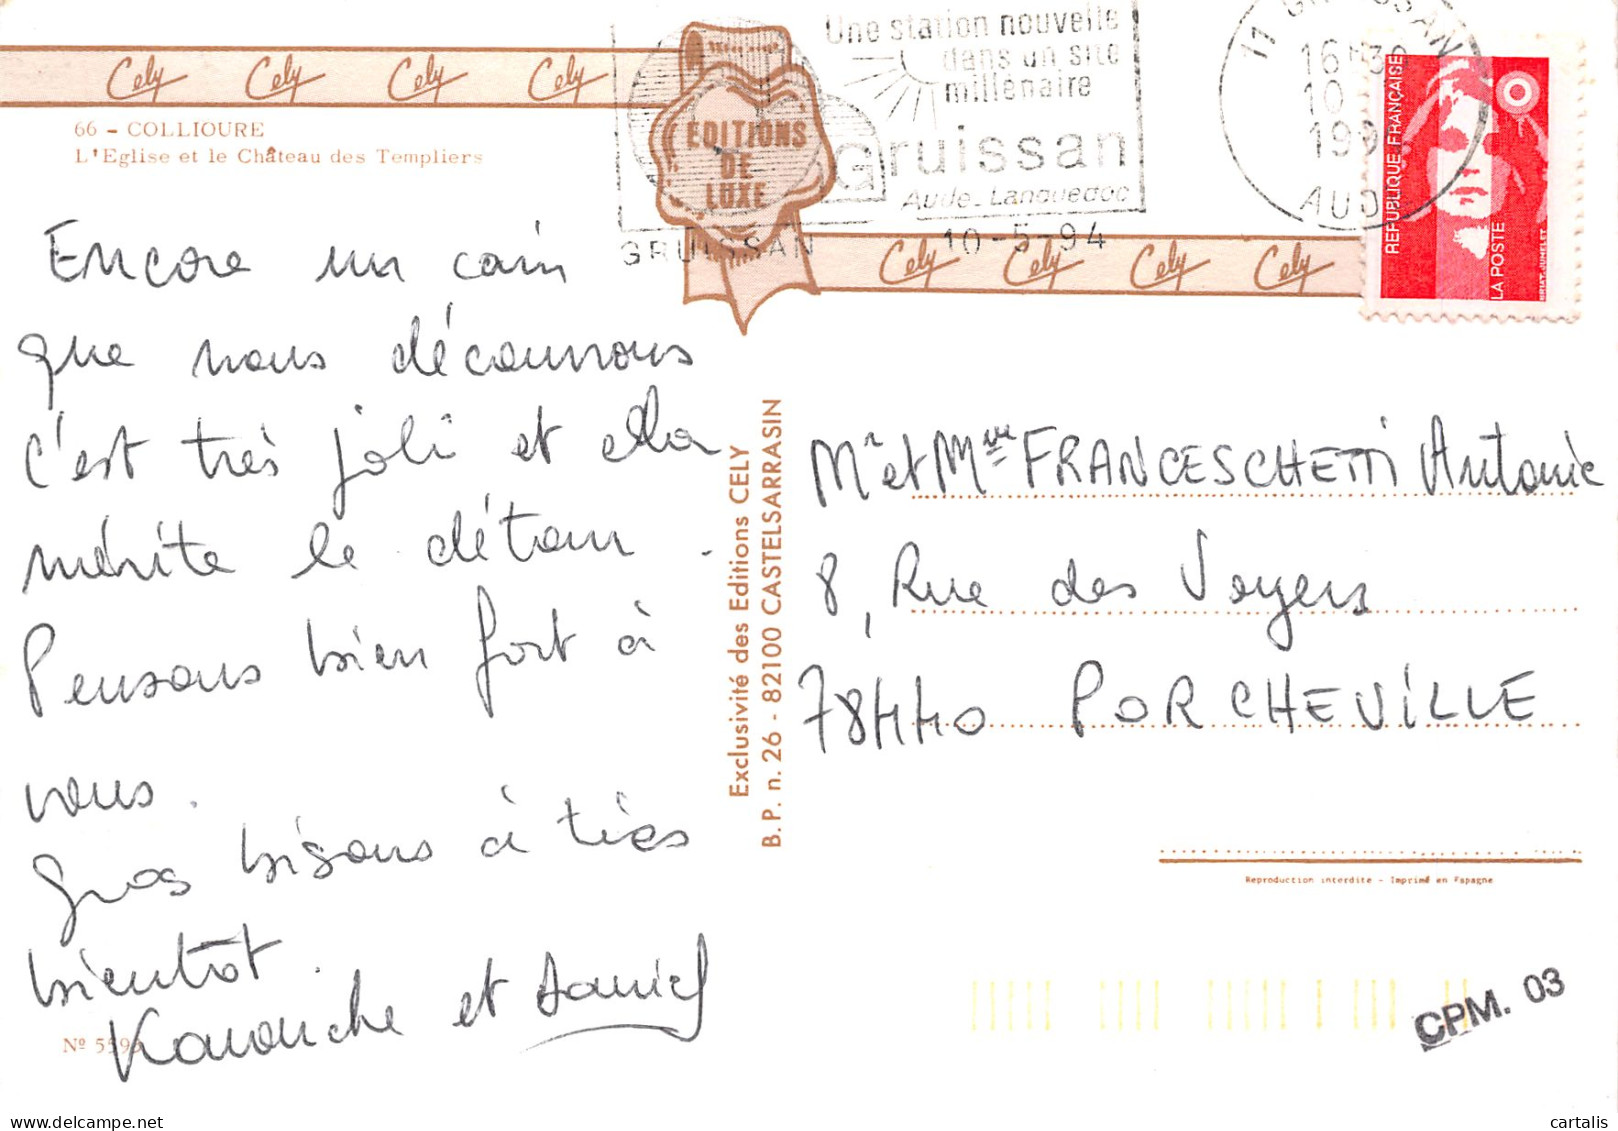 Cely Cely Cely Cely
66 - COLLIOURE
L'Eglise et le Château des Templiers
EDITIONS
DE
LUXE
Une station nouvelle
dans un site
millénaire
Gruissan
Aude. Languedoc
GRUISSAN 10-5-94
11 GRUISSAN
16H30
10
199
AUD
REPUBLIQUE FRANÇAISE
LA POSTE
BRIAT-JUMELET
Cely Cely Cely Cely
Encore un coin
que nous découvrons
c'est très joli et cela
mérite le détour.
Pensons bien fort à
vous.
Gros bisous à très
bientôt.
et Daniel
Nº 559
Exclusivité des Editions CELY
B.P. n. 26 - 82100 CASTELSARRASIN
Mr et Mme FRANCESCHETTI Antoine
8, Rue des Voyers
78440 PORCHEVILLE
Reproduction interdite - Imprimé en Espagne
CPM. 03
cartalis
www.delcampe.net